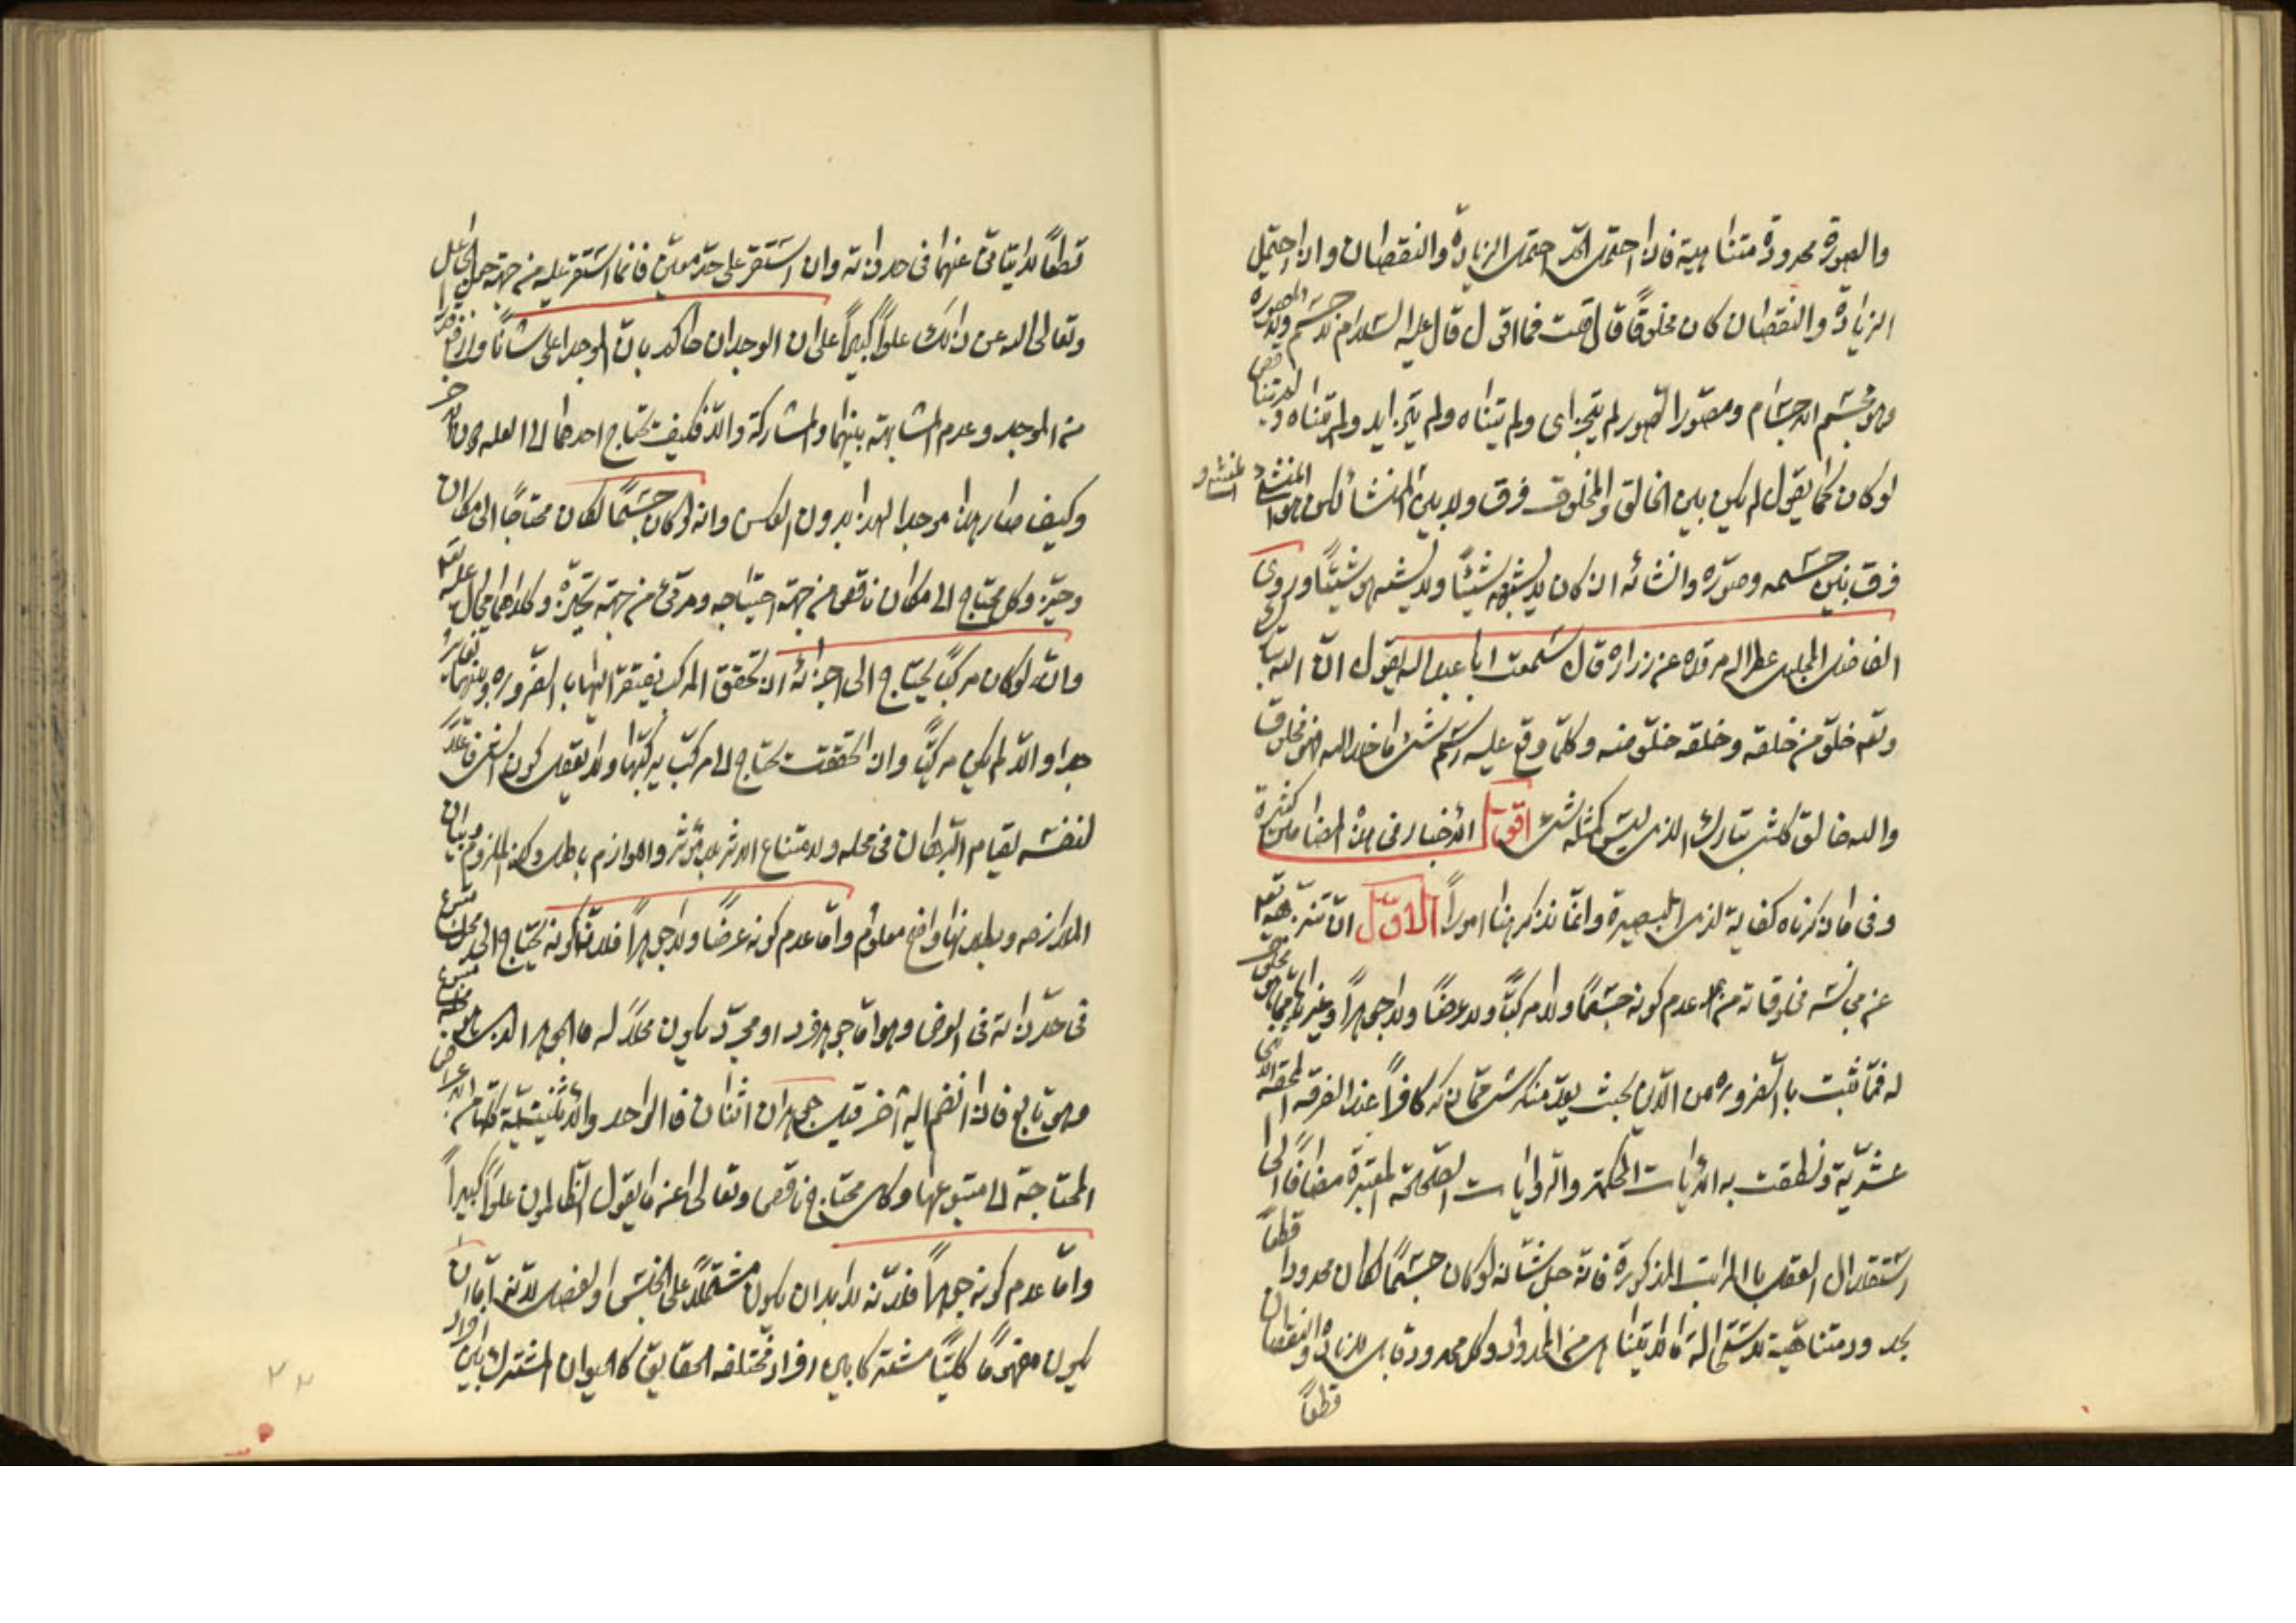 والصورة محدودة متناهية فاذا احتمل الحد احتمل الزيادة والنقصان واذا احتمل
الزيادة والنقصان كان مخلوقًا قال قلت فما اقول قال عليه السلام لا جسم ولا صورة
وهو مجسم الاجسام ومصور الصور لم يتجزاى ولم يتناه ولم يتزايد ولم يتناقص
لو كان كما يقول لم يكن بين الخالق والمخلوق فرق ولا بين المنشأ لكن هو المنشئ
فرق بين جسمه وصوره وانشائه اذ كان لا يشبهه شيئًا ولا يشبه هو شيئًا وروى
الفاضل المجلسى عطر الله مرقده عن زراره قال سمعت ابا عبد الله يقول ان الله
وتعه خلق من خلقه وخلقه خلق منه وكلما وقع عليه اسم شئ ما خلا الله فهو مخلوق
والله خالق كلشئ تبارك الذى ليس كمثله شئ اقول الاخبار فى هذا المضامين كثيرة
وفى ما ذكرناه كفاية لذى البصيرة وانما نذكر هنا امورًا الاول ان تنزيهه تعه
عن مجانسة مخلوقاته من عدم كونه جسمًا ولا مركبًا ولا عرضًا ولا جوهرًا وغيرها مما
له فما ثبت بالضروره من الدين بحيث يعد منكره كافرًا عند الفرقه المحقه الاثنى
عشرية ونطقت به الايات المحكمة والروايات الصحيحة المعتبرة مضافًا الى
استقلال العقل بالمراتب المذكورة فانه جل شأنه لو كان جسمًا لكان محدودا قطعًا
بحدود متناهية لاستحالة ما لا يتناهى من المحدود وكل محدود قابل للزيادة والنقصان
قطعًا
قطعًا لا يتأتى عنهما فى حد ذاته وان استقر على حد معين فانما استقر عليه من جهة جعل الجاعل
وتعالى الله عن ذلك علوًا كبيرًا على ان الوجدان حاكم بان الموجد اعلى شأنًا وارفع
من الموجد وعدم المشابهة بينهما والمشاركة والا فكيف يحتاج احدهما الى العله دون الاخر
وكيف صار هذا موجدا لهذا بدون العكس وانه لو كان جسمًا لكان محتاجًا الى مكان
وحيز وكل محتاج الى مكان ناقص من جهة احتياجه ومرقى من جهة تحيزه وكلاهما محال عليه تعه
وانه لو كان مركبًا يحتاج الى اجزائه اذ تحقق المركب يفتقر اليها بالضروره وبينهما تغاير
جدا والا لم يكن مركبًا وان تحققت يحتاج الى مركب يركبها ولا يعقل كون الشئ فاعلا
لنفسه لقيام البرهان فى محله ولامتناع الاثر بلا مؤثر واللوازم باطل وكذا الملزوم وبيان
الملازمه وبطلانها واضح معلوم واما عدم كونه عرضًا ولا جوهرًا فلانه كونه يحتاج الى محل متبوع
فى حد ذاته فى العرض وهو اما جوهر فرد او مجرد يكون محلًا له
وهو تابع فاذا انضم اليه اخر قيل جوهران اثنان فالواحد والاثنينية كلها من الاعراض
المحتاجة الى متبوعها وكل محتاج ناقص وتعالى عنه ما يقول الظالمون علوًا كبيرًا
واما عدم كونه جوهرًا فلانه لابد ان يكون مشتملًا على الجنس والفصل لانه اما ان
يكون مفهومًا كليًا مشتركا بين افراد مختلفه الحقايق كالحيوان المشترك بين افراد